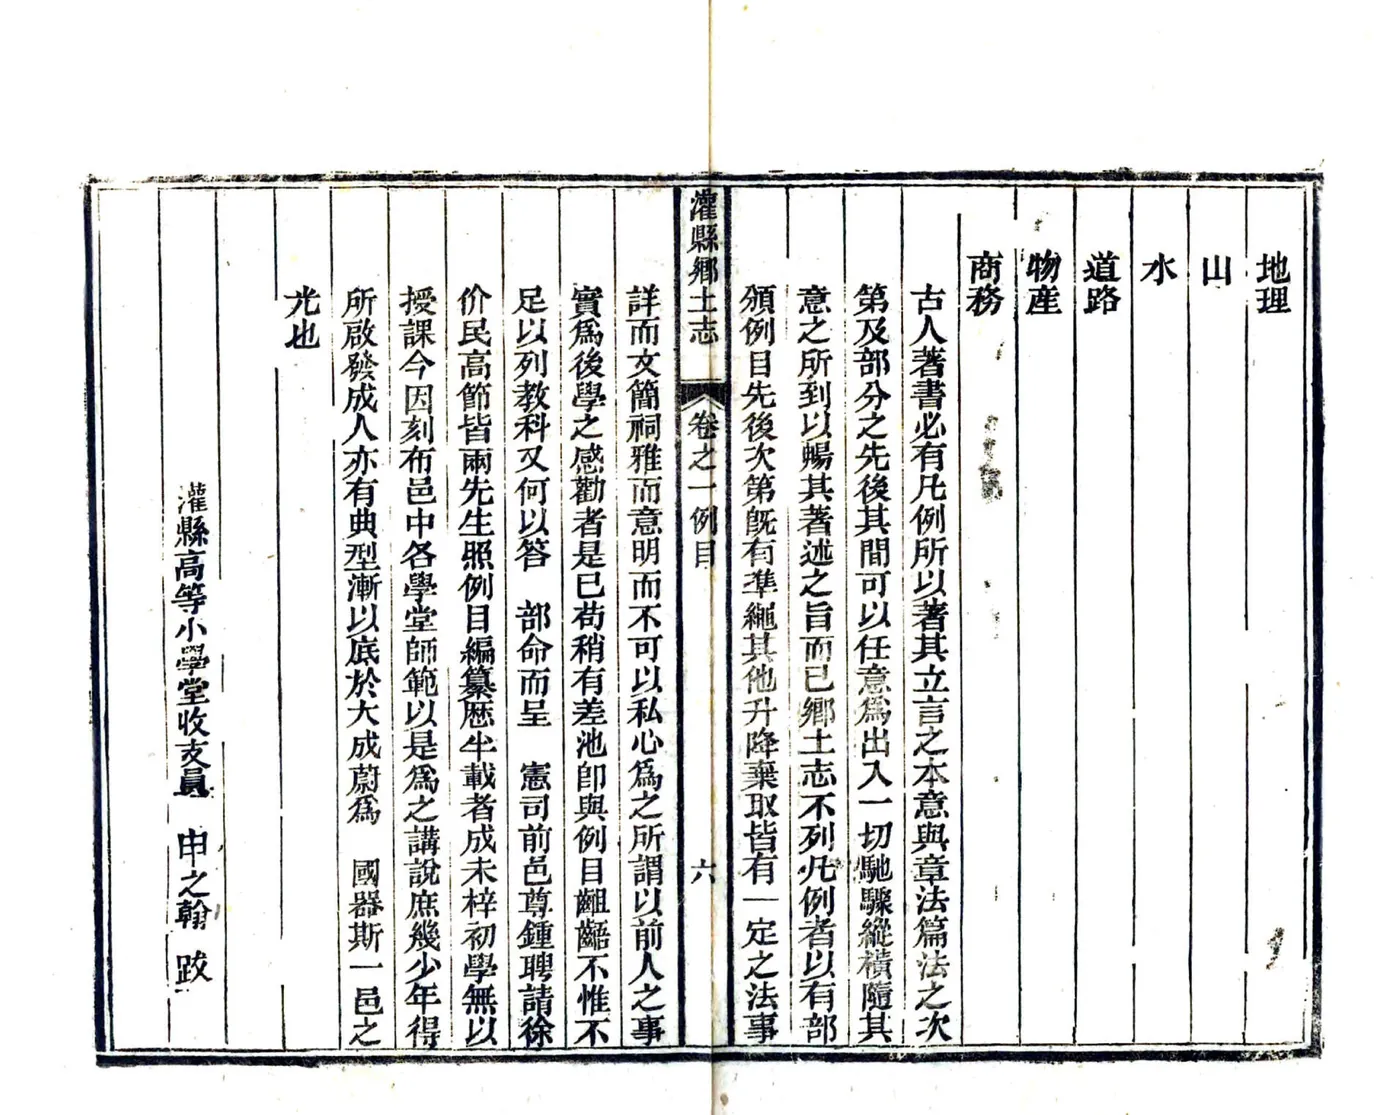 地理
山
水
道路
物產
商務
古人著書必有凡例所以著其立言之本意與章法篇法之次
第及部分之先後其間可以任意爲出入一切馳驟縱橫隨其
意之所到以暢其著述之旨而已鄉土志不列凡例者以有部
頒例目先後次第旣有準繩其他升降棄取皆有一定之法事
灌縣鄉土志 卷之一例目 六
詳而文簡祠雅而意明而不可以私心爲之所謂以前人之事
實爲後學之感勸者是已苟稍有差池卽與例目齟齬不惟不
足以列敎科又何以答 部命而呈 憲司前邑尊鍾聘請徐
价民高節皆兩先生照例目編纂歷半載者成未梓初學無以
授課今因刻布邑中各學堂師範以是爲之講說庶幾少年得
所啟發成人亦有典型漸以底於大成蔚爲 國器斯一邑之
光也
灌縣高等小學堂收支員 申之翰 跋